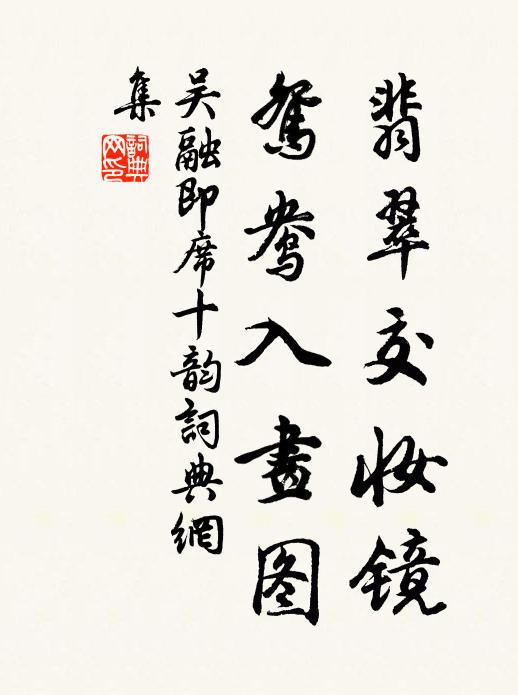 翡翠交妆镜
鸳鸯入畫图
吴融即席十韵詞典網
集
詞典网印